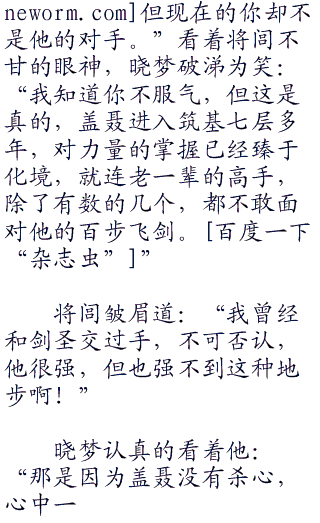 neworm.com]但现在的你却不
是他的对手。”看着将闾不
甘的眼神，晓梦破涕为笑：
“我知道你不服气，但这是
真的，盖聂进入筑基七层多
年，对力量的掌握已经臻于
化境，就连老一辈的高手，
除了有数的几个，都不敢面
对他的百步飞剑。[百度一下
“杂志虫”]”
将闾皱眉道：“我曾经
和剑圣交过手，不可否认，
他很强，但也强不到这种地
步啊！”
晓梦认真的看着他：
“那是因为盖聂没有杀心，
心中一